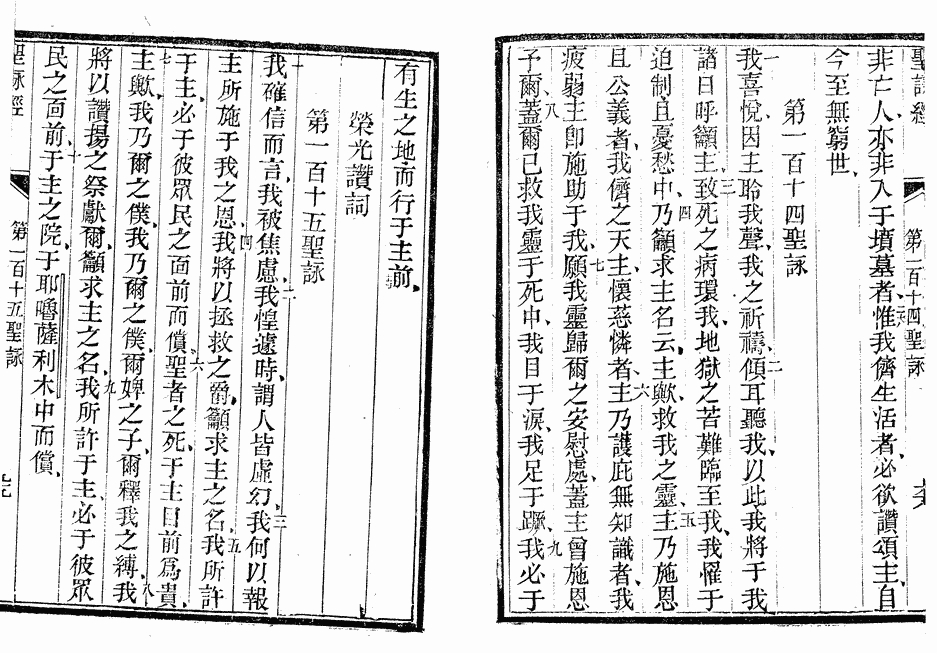 聖詠經 第一百十四聖詠
非亡人、亦非入于墳墓者、惟我儕生活者、必欲讚頌主、自
今至無窮世、
第一百十四聖詠
一我喜悅、因主聆我聲、我之祈禱、二傾耳聽我、以此我將于我
諸日呼籲主、三致死之病環我、地獄之苦難臨至我、我罹于
迫制且憂愁中、四乃籲求主名云、主歟、救我之靈、五主乃施恩
且公義者、我儕之天主、懷慈憐者、六主乃護庇無知識者、我
疲弱、主卽施助于我、七願我靈歸爾之安慰處、蓋主曾施恩
予爾、八蓋爾已救我靈于死中、我目于淚、我足于躓、九我必于
有生之地而行于主前、
榮光讚詞
第一百十五聖詠
一我確信而言、我被焦慮、二我惶遽時、謂人皆虛幻、三我何以報
主所施于我之恩、四我將以拯救之爵、籲求主之名、五我所許
于主、必于彼眾民之面前而償、六聖者之死、于主目前爲貴、
七主歟、我乃爾之僕、我乃爾之僕、爾婢之子、爾釋我之縛、八我
將以讚揚之祭獻爾、籲求主之名、九我所許于主、必于彼眾
民之面前、十于主之院、于耶嚕薩利木中而償、
聖詠經 第一百十五聖詠